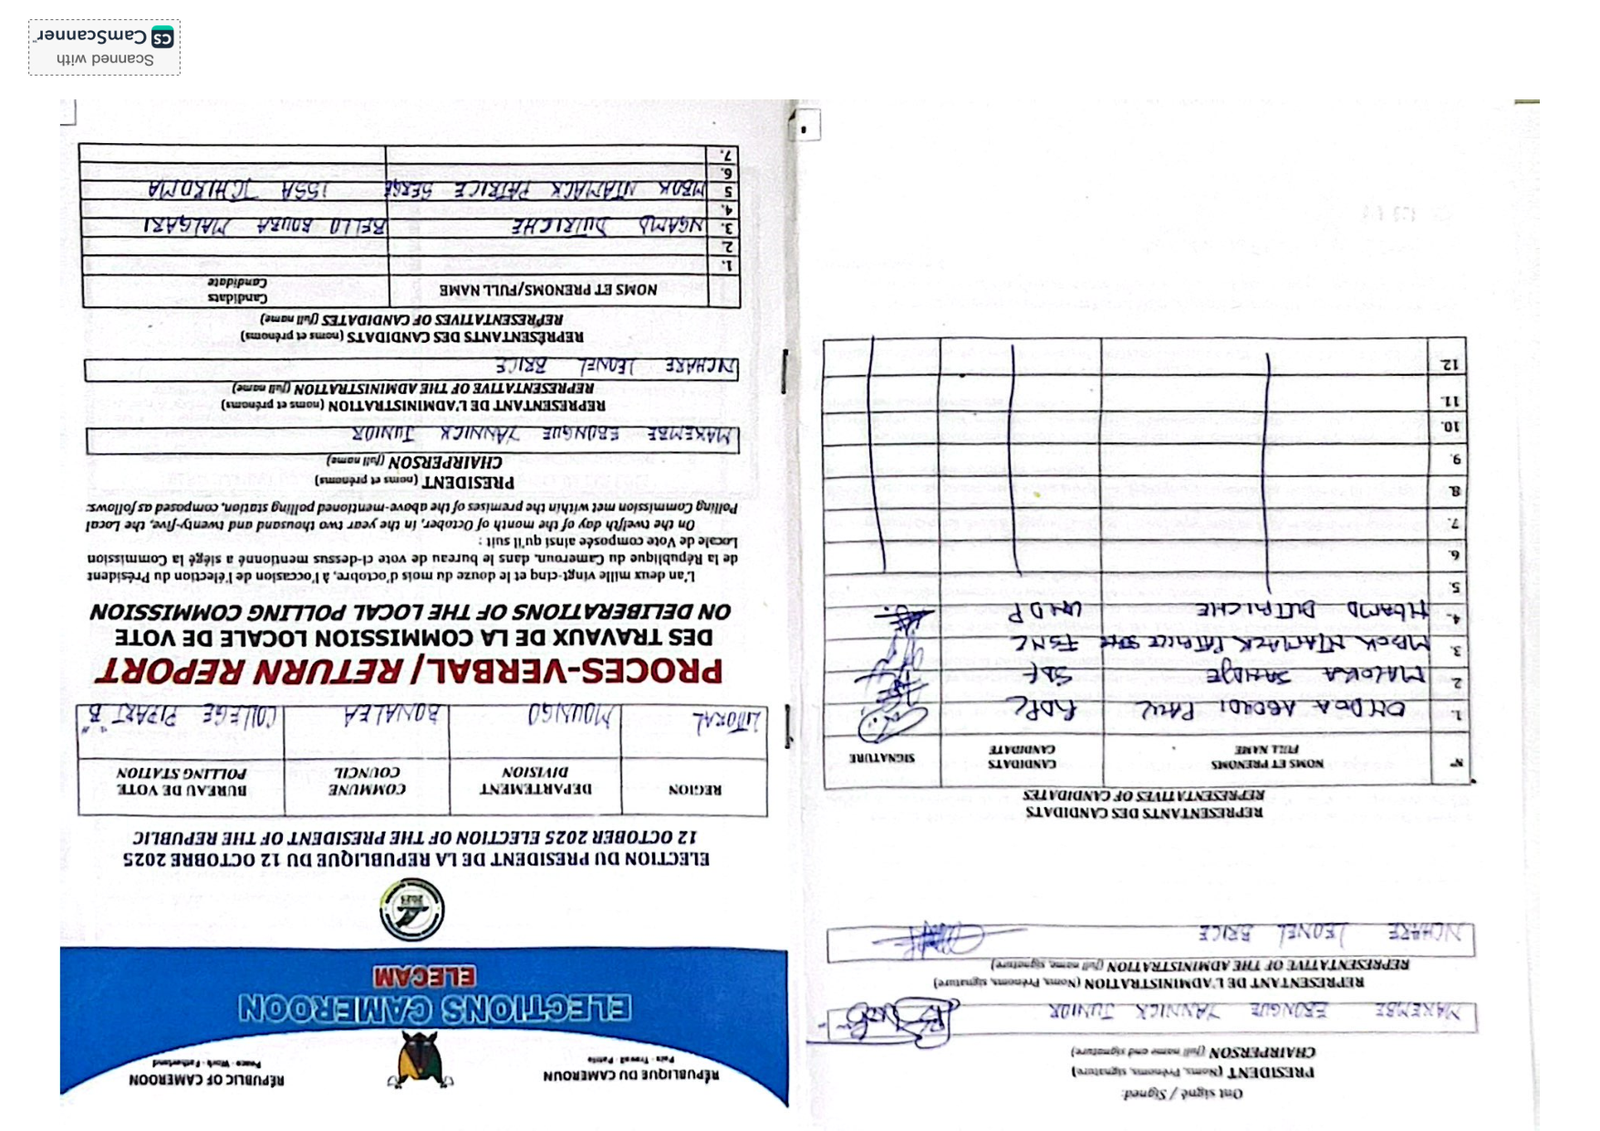 Ont signé / Signed:
PRESIDENT (Noms, Prénoms, signature)
CHAIRPERSON (full name and signature)
MAKEMBE EBONGUE YANNICK JUNIOR
REPRESENTANT DE L'ADMINISTRATION (Noms, Prénoms, signature)
REPRESENTATIVE OF THE ADMINISTRATION (full name, signature)
NCHARE LEONEL BRICE
REPRESENTANTS DES CANDIDATS
REPRESENTATIVES OF CANDIDATES
N° NOMS ET PRENOMS FULL NAME CANDIDATS CANDIDATE SIGNATURE
1. PAUL RDPC
2 SDF
3. MBOK NTAMACK PATRICE FSNC
4. DUTRICHE UNDP
5.
6.
7.
8.
9.
10.
11.
12
RÉPUBLIQUE DU CAMEROUN
Paix - Travail - Patrie
REPUBLIC OF CAMEROON
Peace - Work - Fatherland
ELECTIONS CAMEROON
ELECAM
2025
ELECTION DU PRESIDENT DE LA REPUBLIQUE DU 12 OCTOBRE 2025
12 OCTOBER 2025 ELECTION OF THE PRESIDENT OF THE REPUBLIC
REGION DEPARTEMENT DIVISION COMMUNE COUNCIL BUREAU DE VOTE POLLING STATION
LITTORAL MOUNGO BONALEA COLLEGE "B"
PROCES-VERBAL/ RETURN REPORT
DES TRAVAUX DE LA COMMISSION LOCALE DE VOTE
ON DELIBERATIONS OF THE LOCAL POLLING COMMISSION
L'an deux mille vingt-cinq et le douze du mois d'octobre, à l'occasion de l'élection du Président
de la République du Cameroun, dans le bureau de vote ci-dessus mentionné a siégé la Commission
Locale de Vote composée ainsi qu'il suit :
On the twelfth day of the month of October, in the year two thousand and twenty-five, the Local
Polling Commission met within the premises of the above-mentioned polling station, composed as follows:
PRESIDENT (noms et prénoms)
CHAIRPERSON (full name)
MAKEMBE EBONGUE YANNICK JUNIOR
REPRESENTANT DE L'ADMINISTRATION (noms et prénoms)
REPRESENTATIVE OF THE ADMINISTRATION (full name)
NCHARE LEONEL BRICE
REPRÉSENTANTS DES CANDIDATS (noms et prénoms)
REPRESENTATIVES OF CANDIDATES (full name)
NOMS ET PRENOMS/FULL NAME Candidats Candidate
1.
2.
3. NGAMO DUTRICHE BELLO BOUBA MAIGARI
4.
5 MBOK NTAMACK PATRICE SERGE ISSA TCHIROMA
6.
7.
Scanned with
CS CamScanner